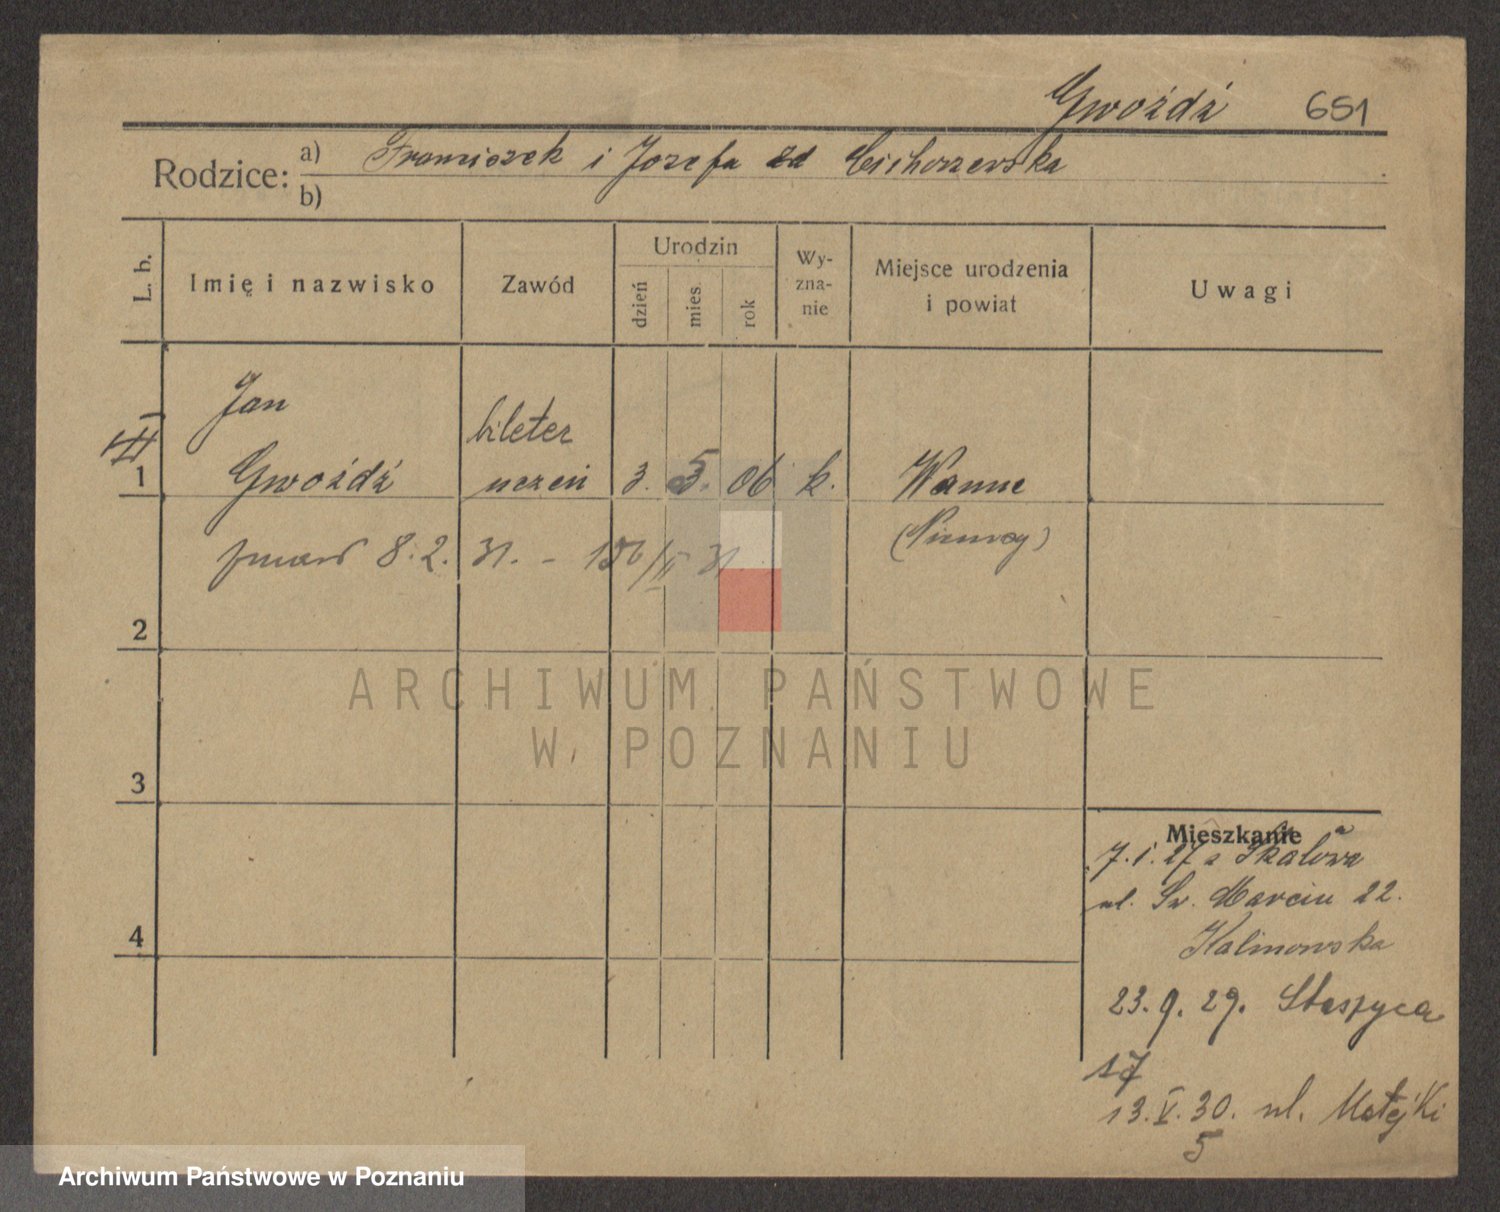 Gwoźdź 651
Rodzice: a) Franciszek i Józefa zd Cichorzewska
b)
L. b.
Imię i nazwisko
Zawód
Urodzin
dzień
mies.
rok
Wy-
zna-
nie
Miejsce urodzenia
i powiat
Uwagi
Jan
bileter
1 Gwoźdź uczeń 3. 5. 06 k. Wanne
(Niemcy)
zmarł 8. 2. 31. - 156/II 31
2
ARCHIWUM PAŃSTWOWE
W POZNANIU
3
Mieszkanie
7. 1. 27 z Skałowa
ul. Św. Marcin 22.
Kalinowska
4
23. 9. 29. Staszyca
17
13. V. 30. ul. Matejki
5
Archiwum Państwowe w Poznaniu